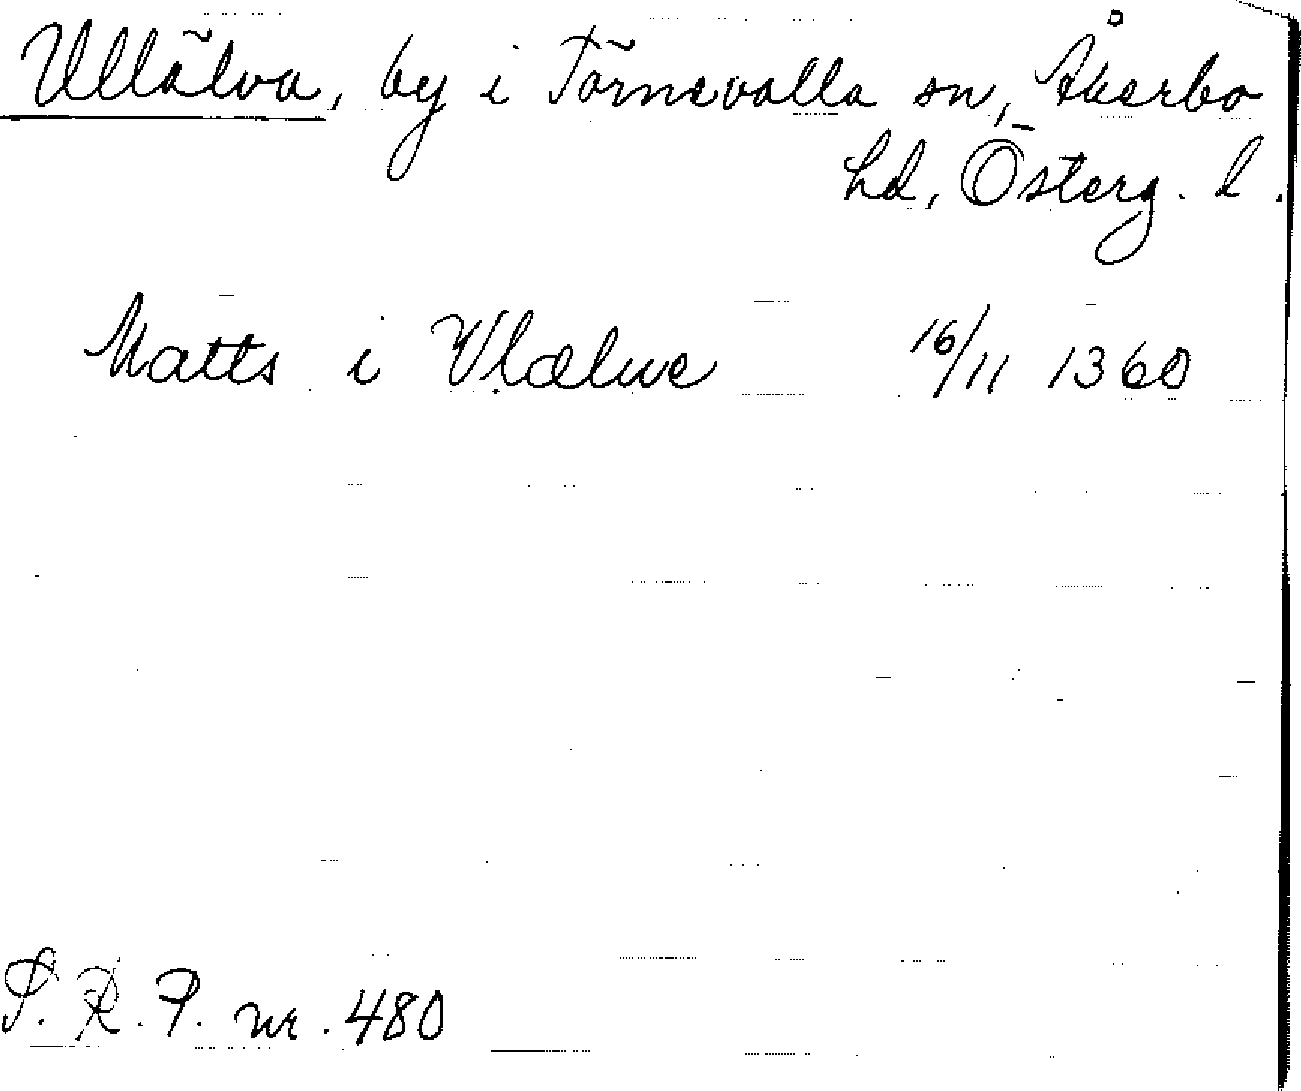 Ullälva, by i Törnevalla sn, Åkerbo
hd, Österg. l.
Matts i Vlælwe 16/11 1360
S. R. P. nr. 480